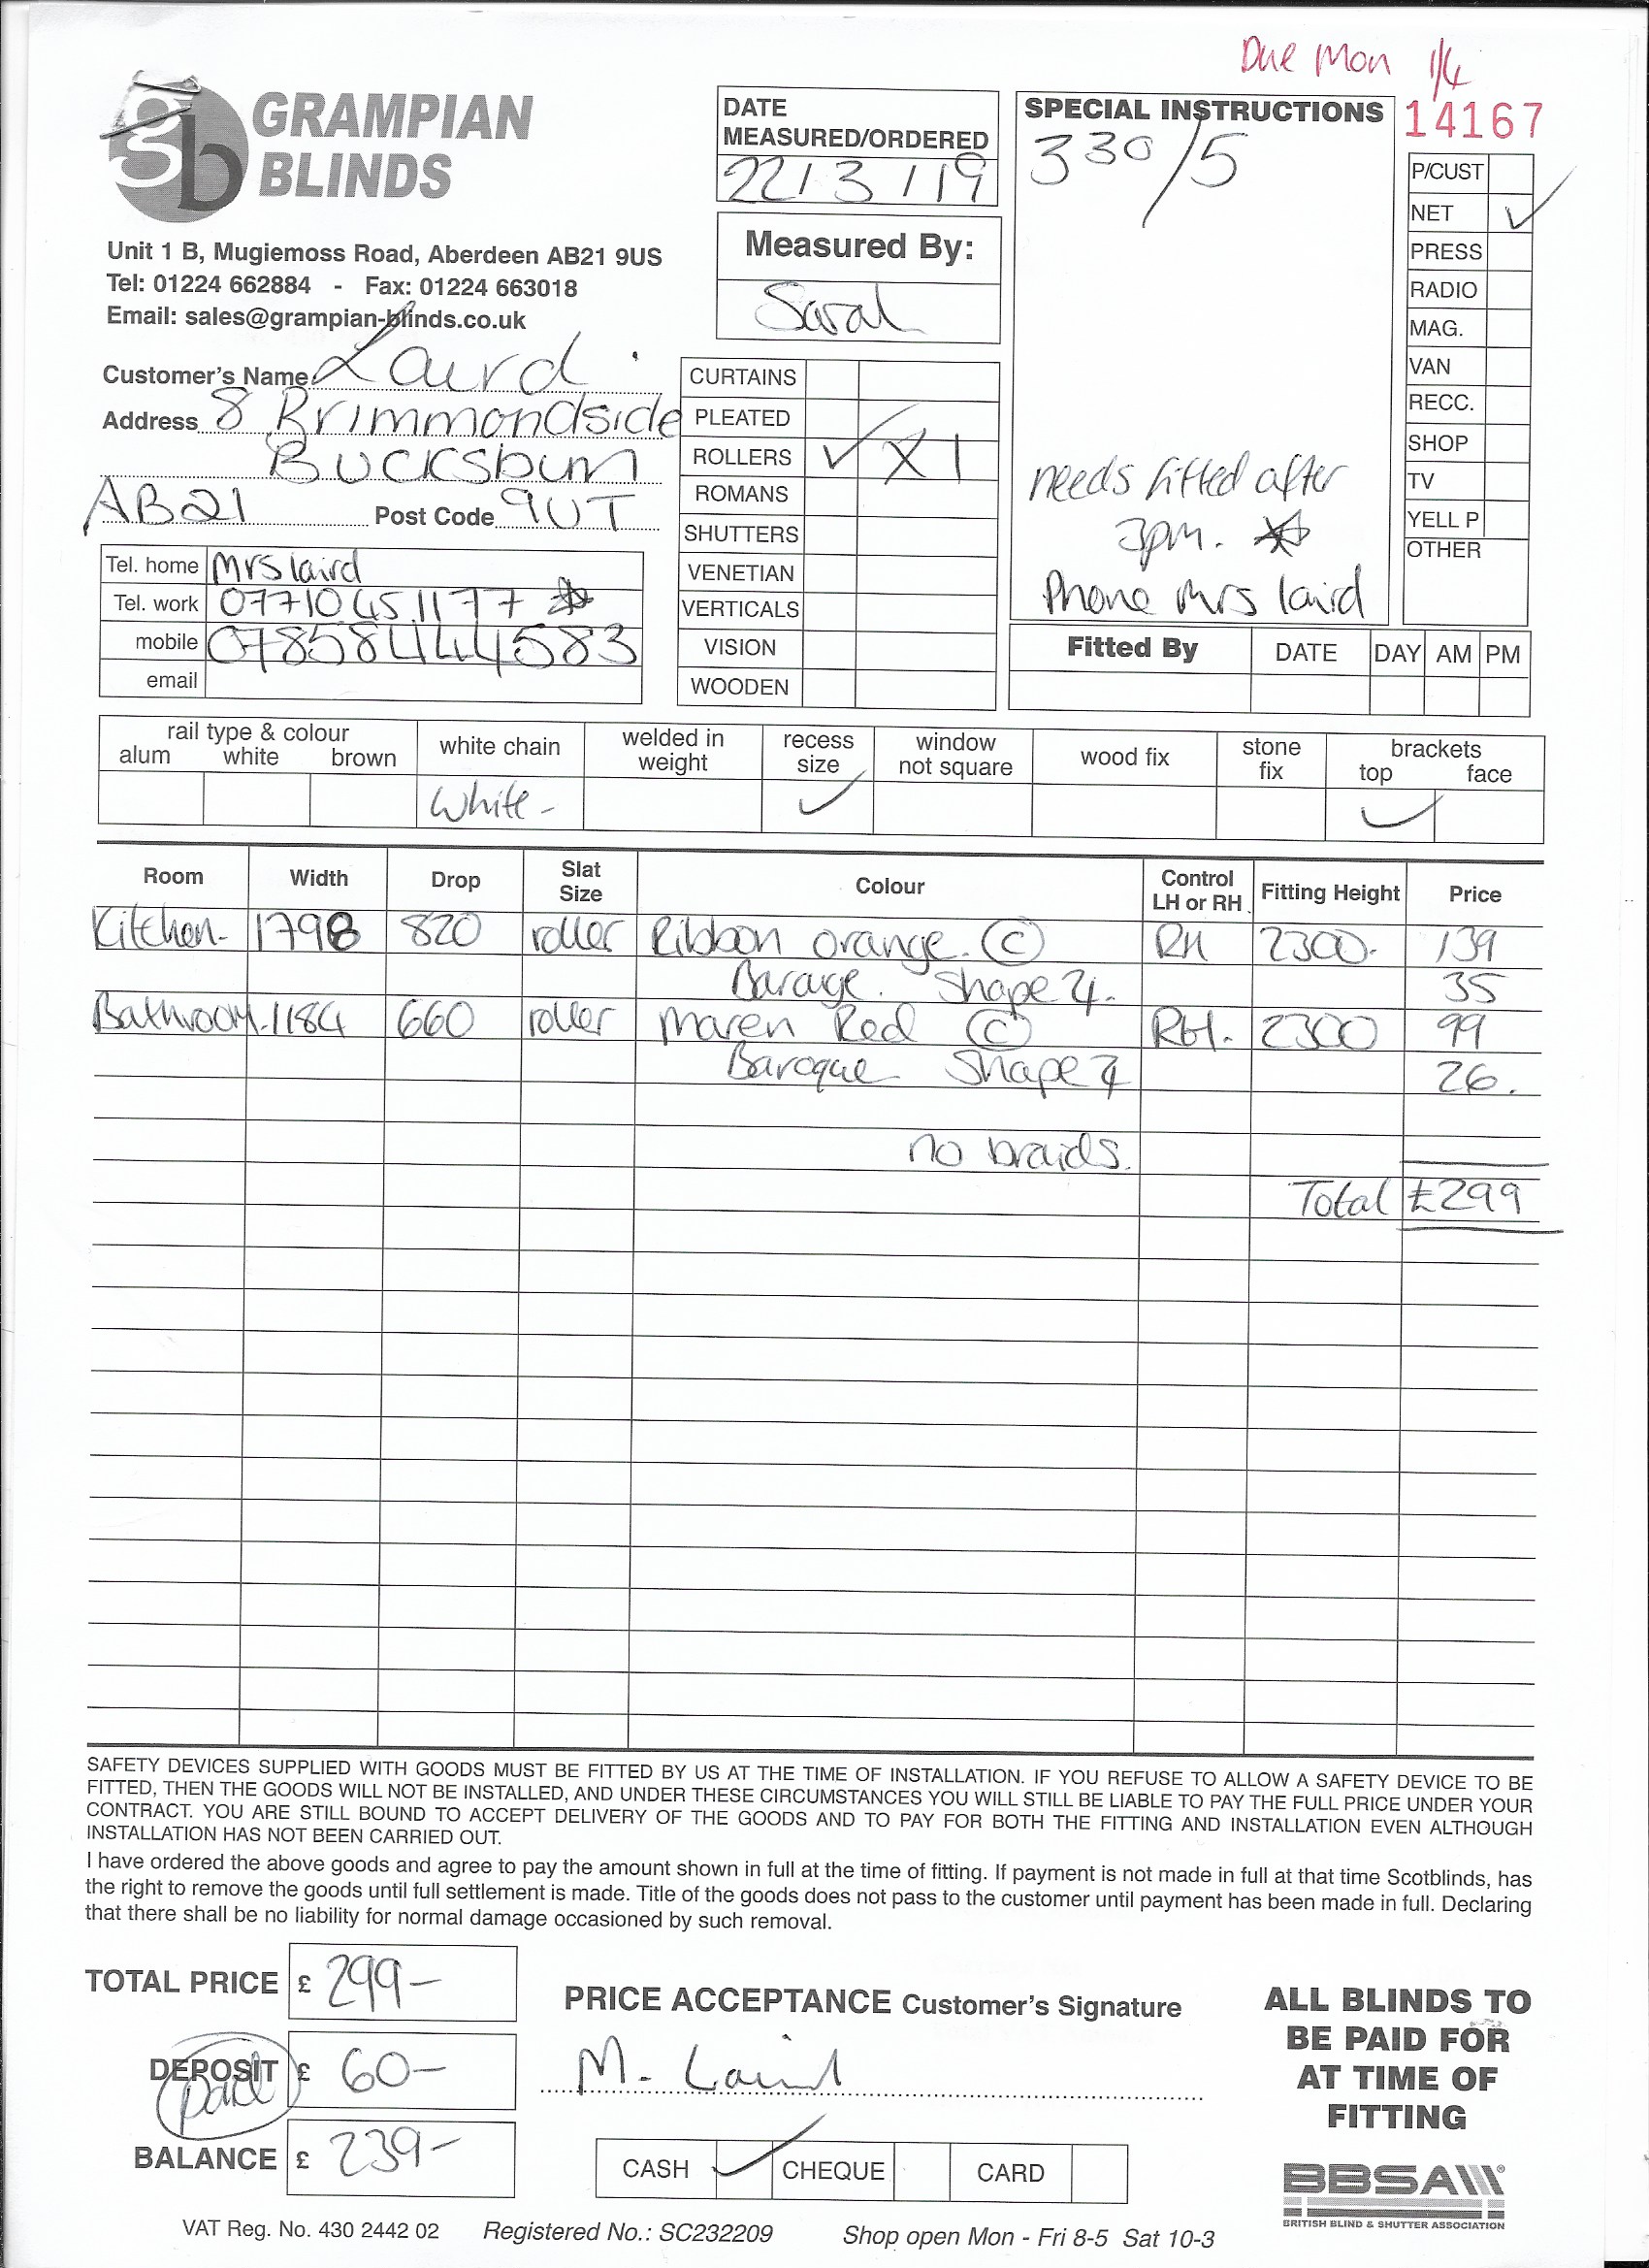 Due Mon 1/4
14167
GRAMPIAN
BLINDS
Unit 1 B, Mugiemoss Road, Aberdeen AB21 9US
Tel: 01224 662884 - Fax: 01224 663018
Email: sales@grampian-blinds.co.uk
Customer's Name Laird
Address 8 Brimmondside
Bucksburn
AB21 Post Code 9UT
Tel. home Mrs laird
Tel. work 07710451177
mobile 07858444583
email
DATE
MEASURED/ORDERED
22/3/19
Measured By:
Sarah
CURTAINS
PLEATED
ROLLERS ✓ X1
ROMANS
SHUTTERS
VENETIAN
VERTICALS
VISION
WOODEN
SPECIAL INSTRUCTIONS
330/5
needs fitted after
3pm.
Phone Mrs laird
P/CUST
NET ✓
PRESS
RADIO
MAG.
VAN
RECC.
SHOP
TV
YELL P
OTHER
Fitted By DATE DAY AM PM
rail type & colour
alum white brown
white chain
White -
welded in
weight
recess
size
✓
window
not square
wood fix
stone
fix
brackets
top face
✓
Room Width Drop Slat Size Colour Control LH or RH Fitting Height Price
Kitchen- 1798 820 roller Ribbon orange. (C) RH 2300- 139
Barage. Shape 4. 35
Bathroom-1184 660 roller Maren Red (C) RH. 2300 99
Baroque Shape 4 26.
no braids.
Total £299
SAFETY DEVICES SUPPLIED WITH GOODS MUST BE FITTED BY US AT THE TIME OF INSTALLATION. IF YOU REFUSE TO ALLOW A SAFETY DEVICE TO BE
FITTED, THEN THE GOODS WILL NOT BE INSTALLED, AND UNDER THESE CIRCUMSTANCES YOU WILL STILL BE LIABLE TO PAY THE FULL PRICE UNDER YOUR
CONTRACT. YOU ARE STILL BOUND TO ACCEPT DELIVERY OF THE GOODS AND TO PAY FOR BOTH THE FITTING AND INSTALLATION EVEN ALTHOUGH
INSTALLATION HAS NOT BEEN CARRIED OUT.
I have ordered the above goods and agree to pay the amount shown in full at the time of fitting. If payment is not made in full at that time Scotblinds, has
the right to remove the goods until full settlement is made. Title of the goods does not pass to the customer until payment has been made in full. Declaring
that there shall be no liability for normal damage occasioned by such removal.
TOTAL PRICE £ 299-
DEPOSIT £ 60-
paid
BALANCE £ 239-
PRICE ACCEPTANCE Customer's Signature
M. Laird
CASH ✓ CHEQUE CARD
ALL BLINDS TO
BE PAID FOR
AT TIME OF
FITTING
BBSA
BRITISH BLIND & SHUTTER ASSOCIATION
VAT Reg. No. 430 2442 02 Registered No.: SC232209 Shop open Mon - Fri 8-5 Sat 10-3